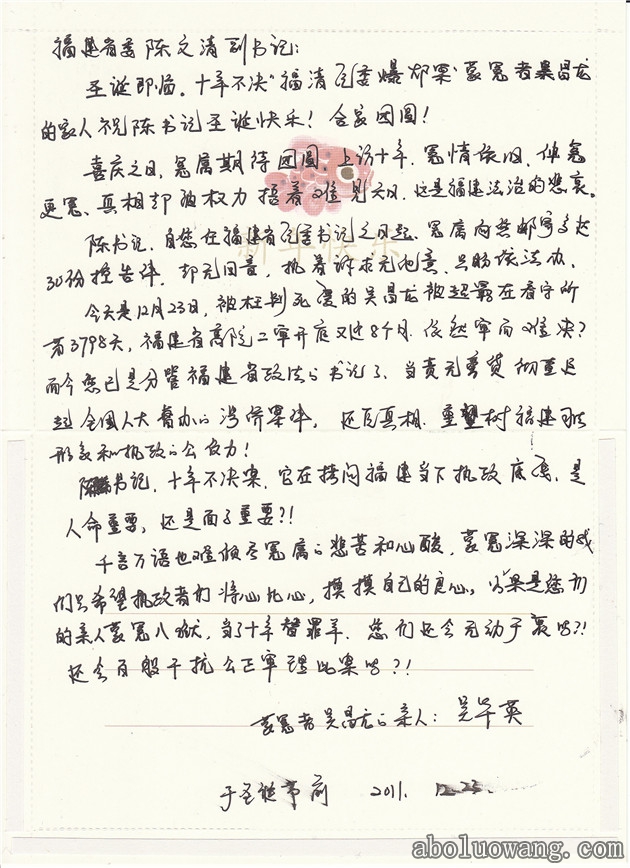 福建省委陈文清副书记：
圣诞即临。十年不决“福清纪委爆炸案”蒙冤者吴昌龙
的家人祝陈书记圣诞快乐！合家团圆！
喜庆之日，冤属期待团圆。上访十年，冤情依旧，伸冤
更冤、真相却被权力捂着难见天日，这是福建法治的悲哀。
新年快乐
陈书记，自您在福建省纪委书记之日起，冤属向您邮寄多达
30份控告律，却无回音，执着诉求无他意，只盼依法办。
今天是12月23日，被枉判死缓的吴昌龙被超羁在看守所
第3798天，福建省高院二审开庭又过8个月，依然审而难决？
而今您已是分管福建省政法的书记了，当责无旁贷彻查
全国人大督办的涉侨案件，还民真相，重塑树福建
形象和执政的公信力！
陈书记，十年不决案，它在拷问福建当下执政底线，是
人命重要，还是面子重要？！
千言万语也难倾尽冤属的悲苦和心酸，蒙冤深深的我
们只希望执政者们将心比心，摸摸自己的良心，如果是您们
的亲人蒙冤入狱，当了十年替罪羊，您们还会无动于衷吗？！
还会百般干抗公正审理此案吗？！
蒙冤者吴昌龙的亲人：吴华英
于圣诞节前 2011. 12.23.
aboluowang.com